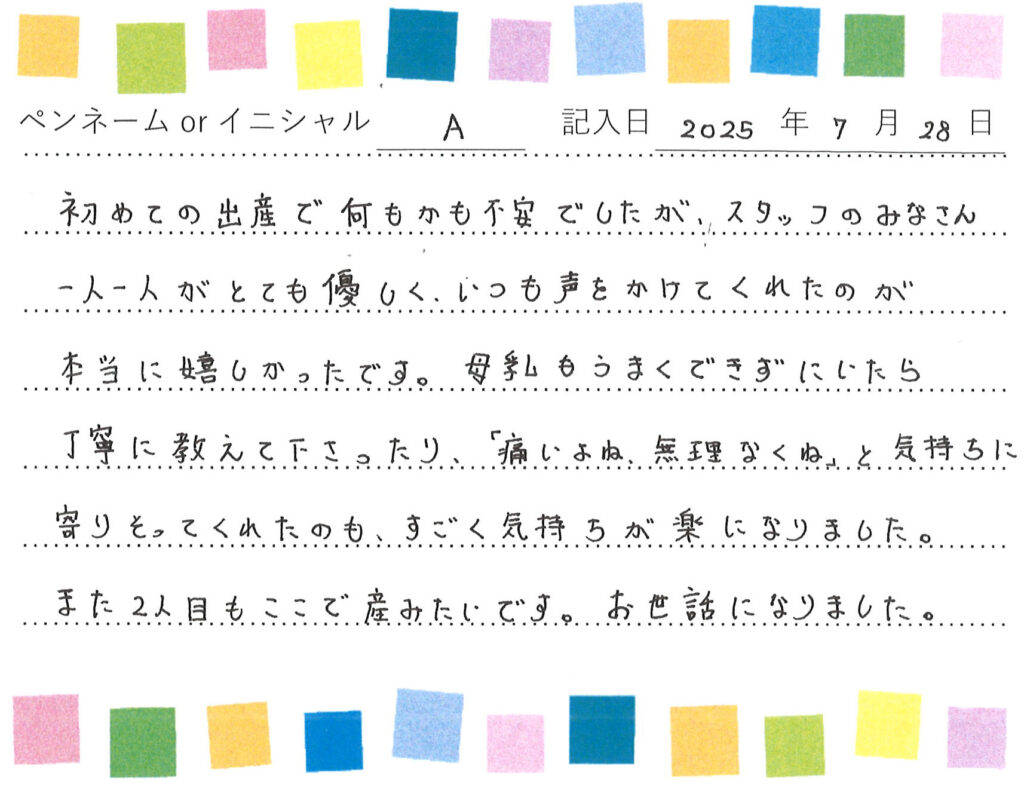 ペンネーム or イニシャル A 記入日 2025 年 7 月 28 日
初めての出産で何もかも不安でしたが、スタッフのみなさん
一人一人がとても優しく、いつも声をかけてくれたのが
本当に嬉しかったです。母乳もうまくできずにいたら
丁寧に教えて下さったり、「痛いよね、無理なくね」と気持ちに
寄りそってくれたのも、すごく気持ちが楽になりました。
また2人目もここで産みたいです。お世話になりました。